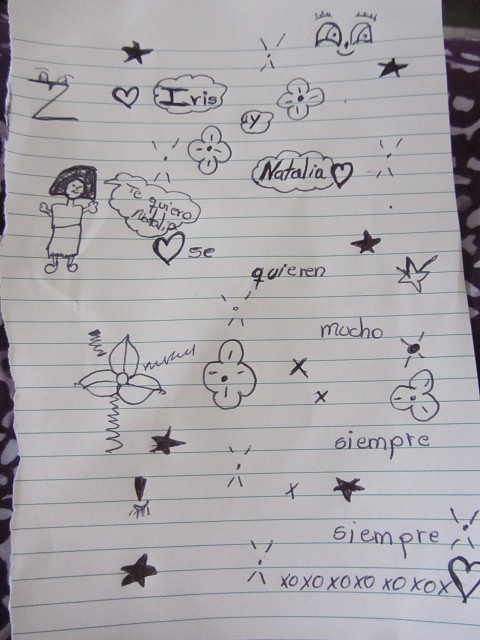 Iris
y
Natalia
Te quiero
Natalia
se
quieren
mucho
siempre
siempre
xoxoxoxo xoxox